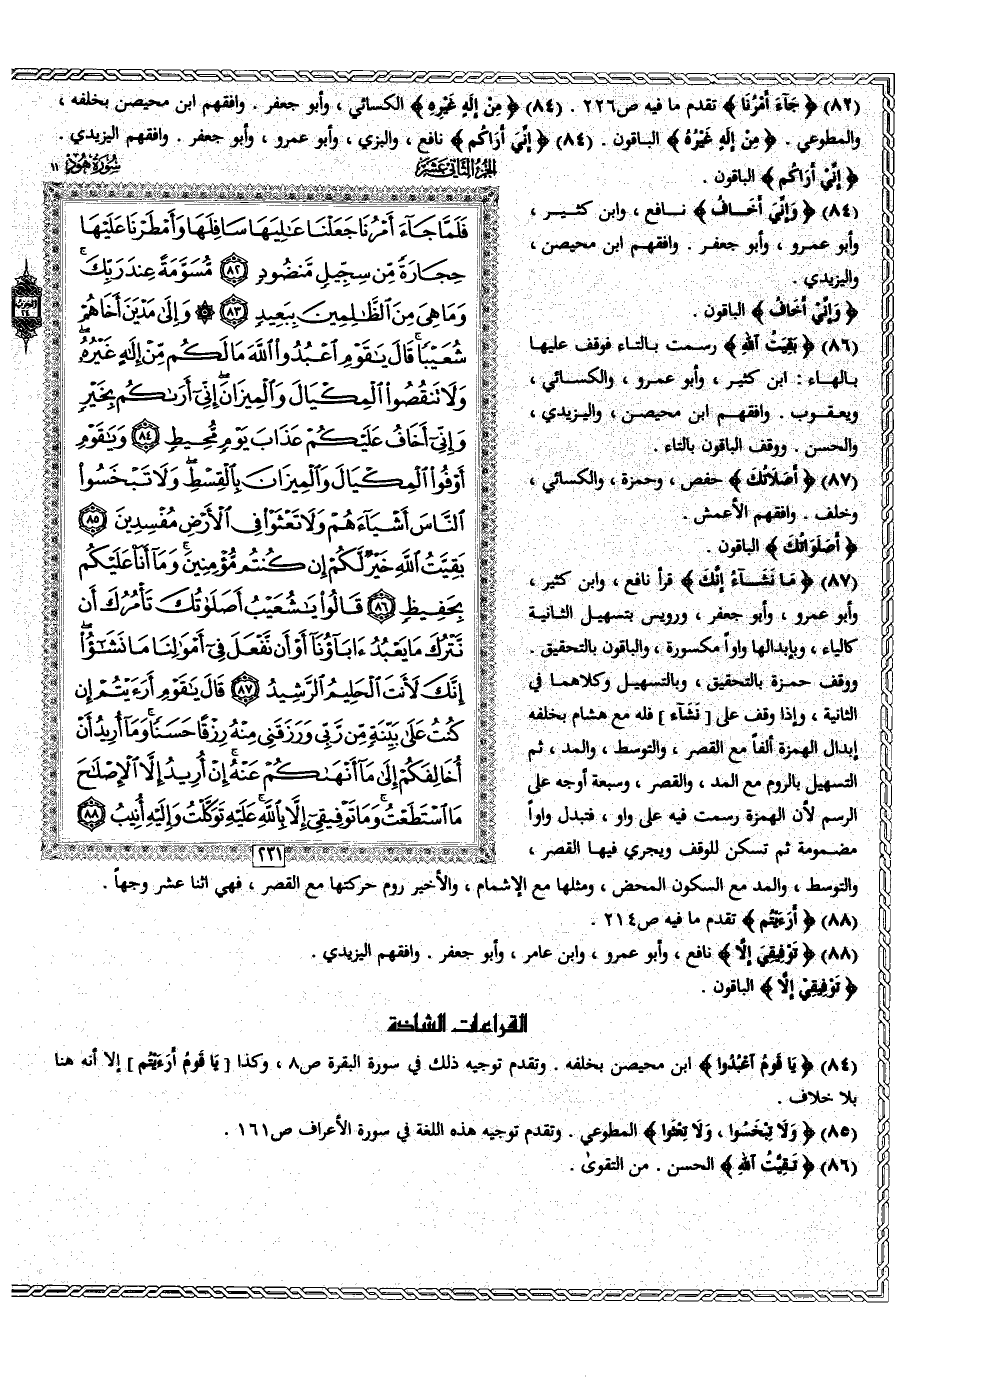 (٨٢) ﴿ جَآءَ أَمْرُنَا ﴾ تقدم ما فيه ص٢٢٦ . (٨٤) ﴿ مِنْ إِلَهٍ غَيْرِهِ ﴾ الكسائي ، وأبو جعفر . وافقهم ابن محيصن بخلفه ،
والمطوعي . ﴿ مِنْ إِلَهٍ غَيْرُهُ ﴾ الباقون . (٨٤) ﴿ إِنِّيَ أَرَاكُم ﴾ نافع ، والبزي ، وأبو عمرو ، وأبو جعفر . وافقهم اليزيدي .
﴿ إِنِّيْ أَرَاكُم ﴾ الباقون .
(٨٤) ﴿ وَإِنِّيَ أَخَـافُ ﴾ نـافع ، وابن كثـير ،
وأبو عمرو ، وأبو جعفر . وافقهم ابن محيصن ،
واليزيدي .
﴿ وَإِنِّيْ أَخَافُ ﴾ الباقون .
(٨٦) ﴿ بَقِيَّتُ اللهِ ﴾ رسمت بـالتاء فوقف عليها
بـالهـاء : ابن كثير ، وأبو عمرو ، والكسائي ،
ويعقـوب . وافقهـم ابن محيصـن ، واليـزيدي ،
والحسن . ووقف الباقون بالتاء .
(٨٧) ﴿ أَصَلَاتُكَ ﴾ حفص ، وحمزة ، والكسائي ،
وخلف . وافقهم الأعمش .
﴿ أَصَلَوَاتُكَ ﴾ الباقون .
(٨٧) ﴿ مَا نَشَـآءُ إِنَّكَ ﴾ قرأ نافع ، وابن كثير ،
وأبو عمرو ، وأبو جعفر ، ورويس بتسهيل الثانية
كالياء ، وبإبدالها واواً مكسورة ، والباقون بالتحقيق .
ووقف حمـزة بالتحقيق ، وبالتسهيل وكلاهمـا في
الثانية ، وإذا وقف على [ نَشَآء ] فله مع هشام بخلفه
إبدال الهمزة ألفاً مع القصر ، والتوسط ، والمد ، ثم
التسهيل بالروم مع المد ، والقصر ، وسبعة أوجه على
الرسم لأن الهمزة رسمت فيه على واو ، فتبدل واواً
مضـمومة ثم تسكن للوقف ويجري فيهـا القصر ،
والتوسط ، والمد مع السكون المحض ، ومثلها مع الإشمام ، والأخير روم حركتها مع القصر ، فهي اثنا عشر وجهاً .
(٨٨) ﴿ أَرَءَيْتُم ﴾ تقدم ما فيه ص٢١٤ .
(٨٨) ﴿ تَوْفِيقِيَ إِلَّا ﴾ نافع ، وأبو عمرو ، وابن عامر ، وأبو جعفر . وافقهم اليزيدي .
﴿ تَوْفِيقِيْ إِلَّا ﴾ الباقون .
القراءات الشاذة
(٨٤) ﴿ يَا قَومُ اَعْبُدُوا ﴾ ابن محيصن بخلفه . وتقدم توجيه ذلك في سورة البقرة ص٨ ، وكذا [ يَا قَومُ أَرَءَيْتُم ] إلا أنه هنا
بلا خلاف .
(٨٥) ﴿ وَلَا تِبْخَسُوا ، وَلَا تِعْثَوا ﴾ المطوعي . وتقدم توجيه هذه اللغة في سورة الأعراف ص١٦١ .
(٨٦) ﴿ تَـقِيَّتُ اَللهِ ﴾ الحسن . من التقوىٰ .
الجزء الثاني عشر
سورة هود ١١
فَلَمَّا جَآءَ أَمْرُنَا جَعَلْنَا عَٰلِيَهَا سَافِلَهَا وَأَمْطَرْنَا عَلَيْهَا
حِجَارَةً مِّن سِجِّيلٍ مَّنضُودٍ ٨٢ مُّسَوَّمَةً عِندَ رَبِّكَۖ
وَمَا هِيَ مِنَ ٱلظَّٰلِمِينَ بِبَعِيدٍ ٨٣ ۞ وَإِلَىٰ مَدْيَنَ أَخَاهُمْ
شُعَيْبًاۚ قَالَ يَٰقَوْمِ ٱعْبُدُوا۟ ٱللَّهَ مَا لَكُم مِّنْ إِلَٰهٍ غَيْرُهُۥۖ
وَلَا تَنقُصُوا۟ ٱلْمِكْيَالَ وَٱلْمِيزَانَۖ إِنِّيٓ أَرَىٰكُم بِخَيْرٍ
وَإِنِّيٓ أَخَافُ عَلَيْكُمْ عَذَابَ يَوْمٍ مُّحِيطٍ ٨٤ وَيَٰقَوْمِ
أَوْفُوا۟ ٱلْمِكْيَالَ وَٱلْمِيزَانَ بِٱلْقِسْطِۖ وَلَا تَبْخَسُوا۟
ٱلنَّاسَ أَشْيَآءَهُمْ وَلَا تَعْثَوْا۟ فِي ٱلْأَرْضِ مُفْسِدِينَ ٨٥
بَقِيَّتُ ٱللَّهِ خَيْرٌ لَّكُمْ إِن كُنتُم مُّؤْمِنِينَۚ وَمَآ أَنَا۠ عَلَيْكُم
بِحَفِيظٍ ٨٦ قَالُوا۟ يَٰشُعَيْبُ أَصَلَوٰتُكَ تَأْمُرُكَ أَن
نَّتْرُكَ مَا يَعْبُدُ ءَابَآؤُنَآ أَوْ أَن نَّفْعَلَ فِيٓ أَمْوَٰلِنَا مَا نَشَٰٓؤُا۟ۖ
إِنَّكَ لَأَنتَ ٱلْحَلِيمُ ٱلرَّشِيدُ ٨٧ قَالَ يَٰقَوْمِ أَرَءَيْتُمْ إِن
كُنتُ عَلَىٰ بَيِّنَةٍ مِّن رَّبِّي وَرَزَقَنِي مِنْهُ رِزْقًا حَسَنًاۚ وَمَآ أُرِيدُ أَنْ
أُخَالِفَكُمْ إِلَىٰ مَآ أَنْهَىٰكُمْ عَنْهُۚ إِنْ أُرِيدُ إِلَّا ٱلْإِصْلَٰحَ
مَا ٱسْتَطَعْتُۚ وَمَا تَوْفِيقِيٓ إِلَّا بِٱللَّهِۚ عَلَيْهِ تَوَكَّلْتُ وَإِلَيْهِ أُنِيبُ ٨٨
٢٣١